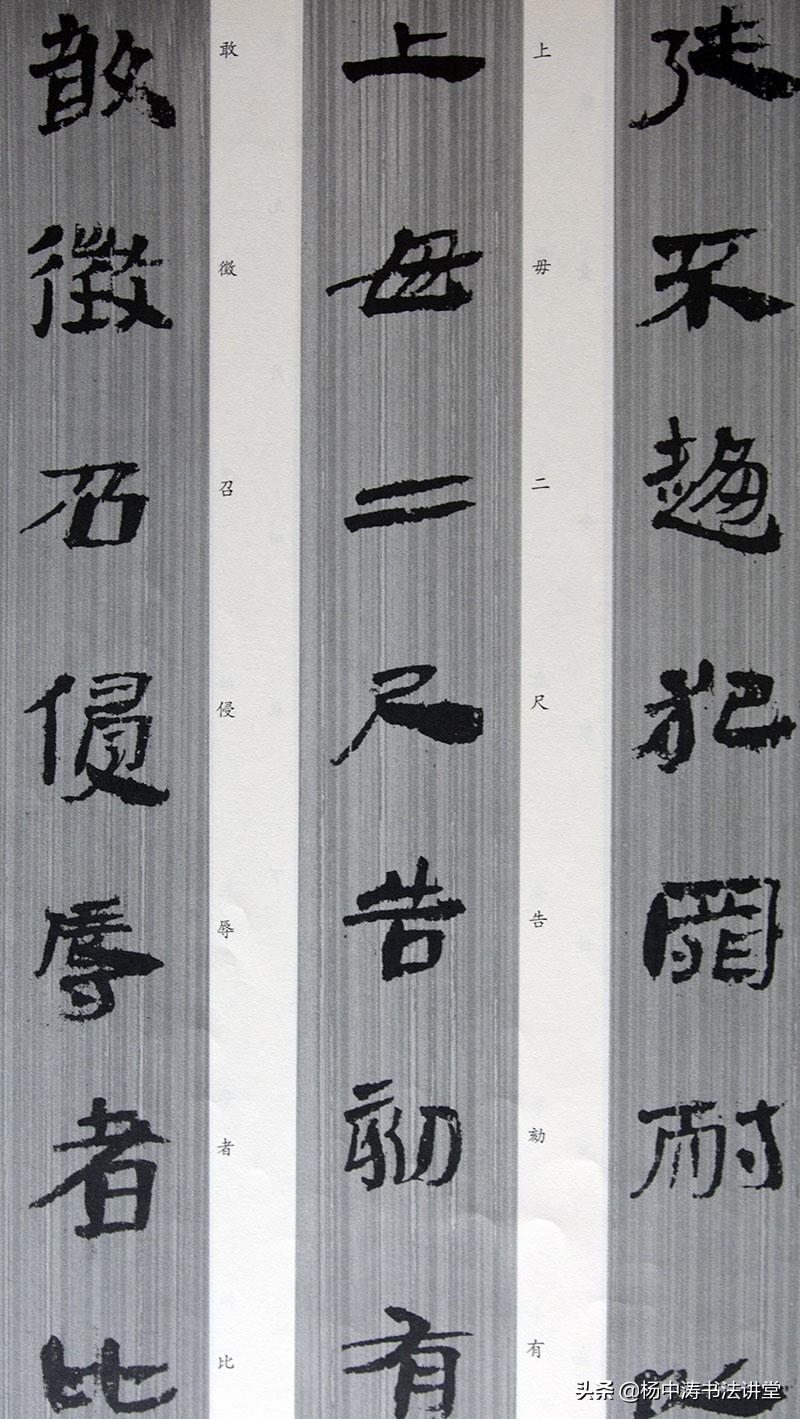 廷不趨犯罪耐以
上毋二尺告劾有
上毋二尺告劾有
敢徵召侵辱者比
敢徵召侵辱者比
头条 @杨中涛书法讲堂